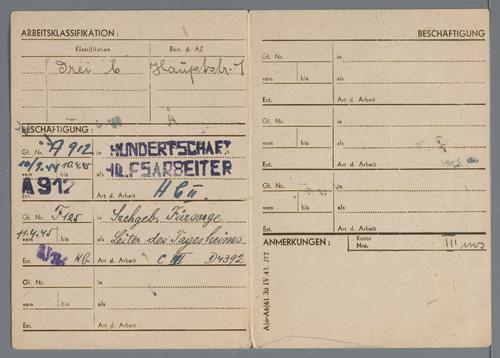 ARBEITSKLASSIFIKATION:
Klassifikation Best. d. AZ
Drei b Hauptstr. 1
BESCHÄFTIGUNG:
Gl. Nr. A 912 in HUNDERTSCHAFT
von bis 10.4.45 als HILFSARBEITER
Est. A912 Art d. Arbeit H C II.
Gl. Nr. F 125 in Sachgeb. Fürsorge
11.4.45
von bis als Leiter des Tagesheimes
Est. Art d. Arbeit C III D4392
Gl. Nr. in
von bis als
Est. Art d. Arbeit
BESCHÄFTIGUNG
Gl. Nr. in
von bis als
Est. Art d. Arbeit
Gl. Nr. in
von bis als
Est. Art d. Arbeit
Gl. Nr. in
von bis als
Est. Art d. Arbeit
ANMERKUNGEN: Konto Nro. III